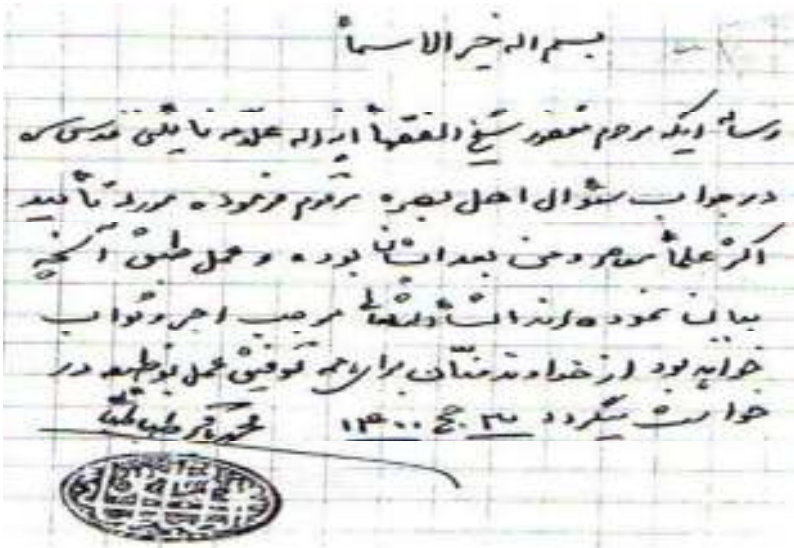 بسم اله خیر الاسماء
رساله ایکه مرحوم مغفور شیخ الفقهأ ایة اله علامه نایئنی قدس سره
در جواب سئوال اهل بصره مرقوم فرموده مورد تأئید
اکثر علمأ معاصر و من بعد ایشان بوده و عمل طبق آنچه
بیان نموده اند انشأالله تعالی موجب اجر و ثواب
خواهد بود از خداوند منّان برای همه توفیق عمل بوظیفه در
خواست میگردد ج ۱۴۰۰ محمد باقر طباطبائی